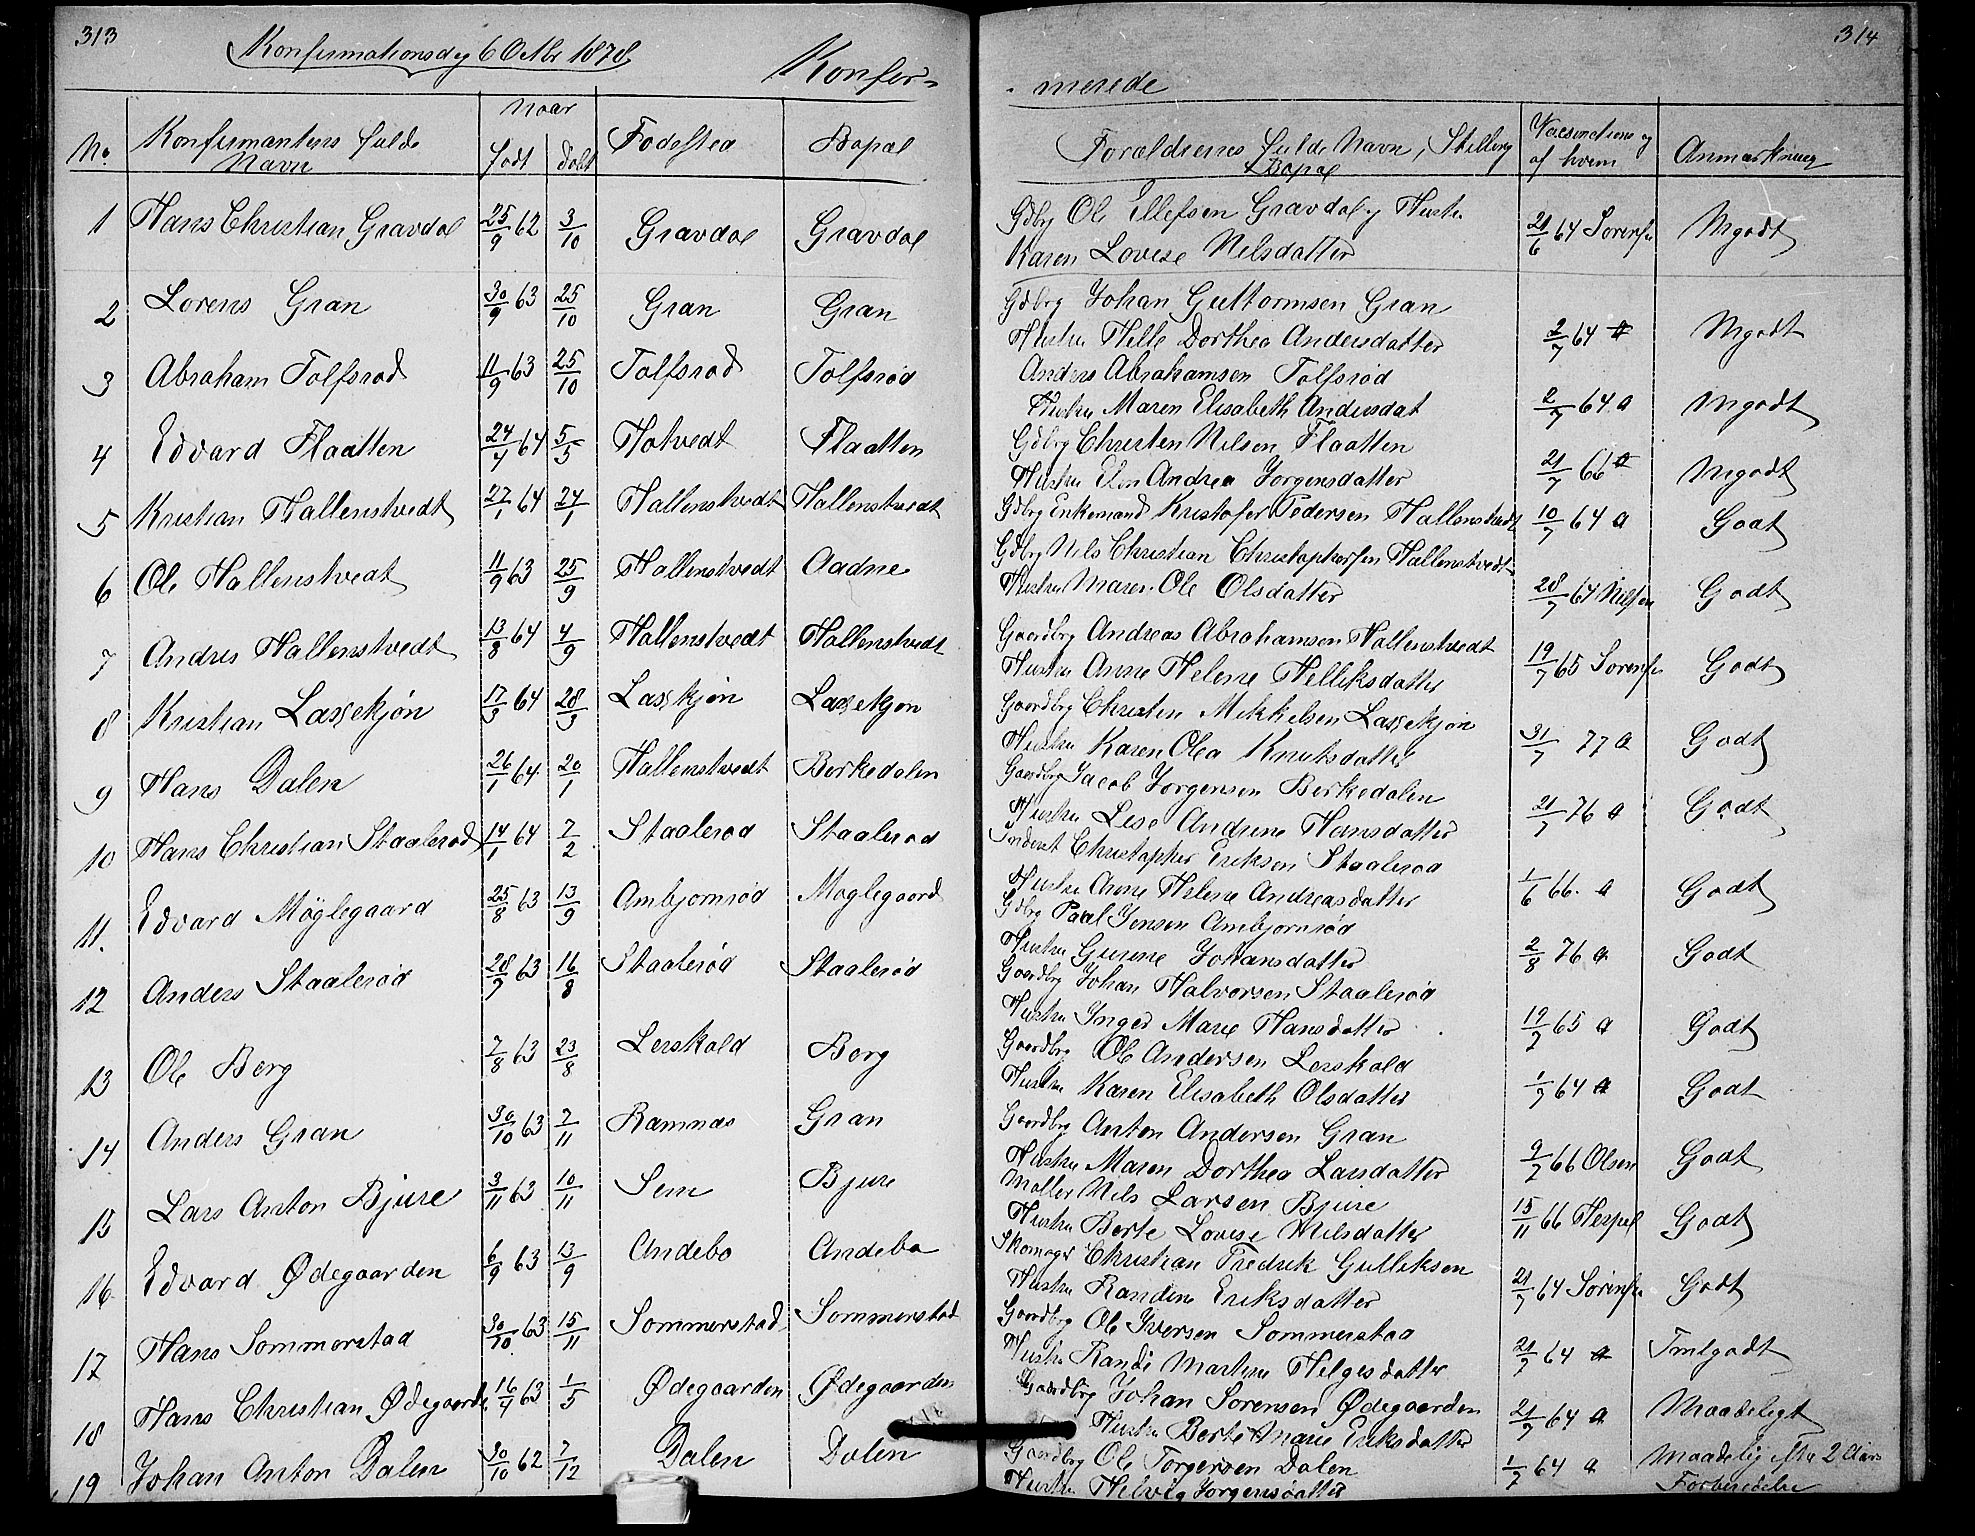 313
Konfirmationsdag 6 Octbr 1878
Konfir-
No.
Konfirmantens fulde
Navn
Naar
født
døbt
Fodested
Bopæl
1 Hans Christian Gravdal 25/9 62 3/10 Gravdal Gravdal
2 Lorens Gran 30/9 63 25/10 Gran Gran
3 Abraham Tolfsrød 11/9 63 25/10 Tolfsrød Tolfsrød
4 Edvard Flaatten 24/4 64 5/5 Hotvedt Flaatten
5 Kristian Hallenstvedt 27/1 64 24/1 Hallenstvedt Hallenstvedt
6 Ole Hallenstvedt 11/9 63 25/9 Hallenstvedt Aadne
7 Andres Hallenstvedt 13/8 64 4/9 Hallenstvedt Hallenstvedt
8 Kristian Lassekjøn 17/3 64 28/3 Lasskjøn Lassekjøn
9 Hans Dalen 26/1 64 20/1 Hallenstvedt Berkedalen
10 Hans Christian Staalerød 14/1 64 7/2 Staalerød Staalerød
11. Edvard Møglegaard 25/8 63 13/9 Ambjornrød Moglegaard
12 Anders Staalerød 28/7 63 16/8 Staalerød Staalerød
13 Ole Berg 7/8 63 23/8 Lerskold Berg
14 Anders Gran 30/10 63 7/11 Ramnas Gran
15 Lars Anton Bjure 3/11 63 10/11 Sem Bjure
16 Edvard Ødegaarden 6/9 63 13/9 Andebo Andebo
17 Hans Sommerstad 30/10 63 15/11 Sommerstad Sommerstad
18 Hans Christian Ødegaarden 16/4 63 1/5 Ødegaarden Ødegaarden
19 Johan Anton Dalen 30/10 62 7/12 Dalen Dalen
314
- merede
Forældrenes fulde Navn, Stilling
Bopæl
Vaccination og
af hvem
Anmærkning
Gdbrg Ole Ellefsen Gravdal og Hustru
Karen Lovise Nilsdatter 21/6 64 Sørensen Mgodt
Gdbrg Johan Guttormsen Gran
Hustru Helle Dorthea Andersdatter 2/7 64 a Mgodt
Anders Abrahamsen Tolfsrød
Hustru Maren Elisabeth Andersdat 2/7 64 a Mgodt
Gdbrg Christen Nilsen Flaatten
Hustru Elen Andrea Jorgensdatter 21/7 66 a Mgodt
Gdbrg Enkemand Kristofer Pedersen Hallenstvedt 10/7 64 a Godt
Gdbrg Nils Christian Christophersen Hallenstvedt
Hustru Maren Ole Olsdatter 28/7 64 Nilsen Godt
Gaardbrg Andreas Abrahamsen Hallenstvedt
Hustru Anne Helene Helliksdatter 19/7 65 Sørensen Godt
Gaardbrg Christen Mikkelsen Lassekjøn
Hustru Karen Olea Knutsdatter 31/7 77 a Godt
Gaardbrg Jacob Jorgensen Berkedalen
Hustru Lese Andrine Hansdatter 21/7 76 a Godt
Inderst Christopher Eriksen Staalerød
Hustru Anne Helene Andreasdatter 1/6 66. a Godt
Gdbrg Paul Jensen Ambjornrød
Hustru Gurine Johansdatter 2/8 76 a Godt
Gaardbrg Johan Halvorsen Staalerød
Hustru Inger Marie Hansdatter 19/7 65 a Godt
Gaardbrg Ole Andersen Lerskold
Hustru Karen Elisabeth Olsdatter 1/7 64 a Godt
Gaardbrg Anton Andersen Gran
Hustru Maren Dorthea Larsdatter 9/7 66 Olsen Godt
Møller Nils Larsen Bjure
Hustru Berte Lovise Nilsdatter 15/11 66 Hespel Godt
Skomager Christian Fredrik Gulliksen
Hustru Randine Eriksdatter 21/7 64 Sørensen Godt
Gaardbrg Ole Iversen Sommerstad
Hustru Randi Martine Helgesdatter 21/7 64 a Tmlgodt
Gaardbrg Johan Sorensen Ødegaarden
Hustru Berte Marie Eriksdatter 21/7 64 a Maadeligt
Gaardbrg Ole Torgersen Dalen
Hustru Helvig Jorgensdatter 1/7 64 a Maadelig efter 2 Aars
Forberedelse